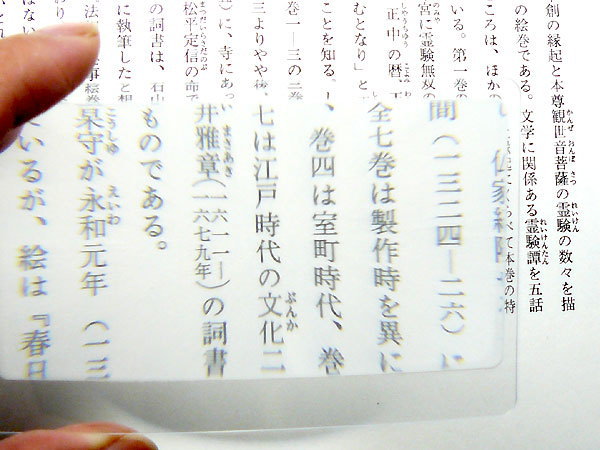 創の縁起と本尊観世音菩薩の霊験の数々を描
の絵巻である。文学に関係ある霊験譚を五話
ころは、ほかの
くらべて本巻の特
いる。第一巻の
宮に霊験無双の
正中の暦、
むとなり」と
ことを知る。
巻一―三の三巻
三よりやや後
に、寺にあっ
松平定信の命で
の詞書は、石山
に執筆したと想
間(一三二四―二六)に
全七巻は製作時を異に
、巻四は室町時代、巻
七は江戸時代の文化二
井雅章(一六一一―一六七九年)の詞書
ものである。
杲守が永和元年(一三
いるが、絵は『春日